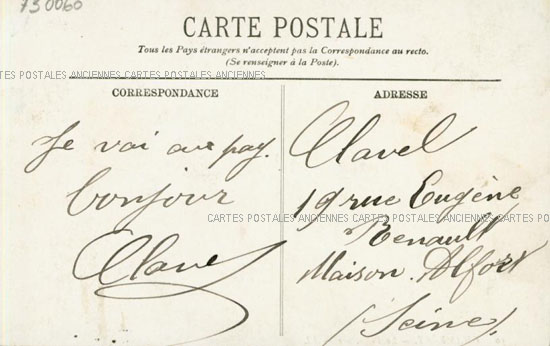 730060
CARTE POSTALE
Tous les Pays étrangers n'acceptent pas la Correspondance au recto.
(Se renseigner à la Poste).
CARTES POSTALES ANCIENNES CARTES POSTALES ANCIENNES
CORRESPONDANCE
Je vai au pay.
bonjour
Clavel
ADRESSE
Clavel
19 rue Eugène
CARTES POSTALES ANCIENNES CARTES POSTALES ANCIENNES CARTES POS
Renault
Maison. Alfort
(Seine)